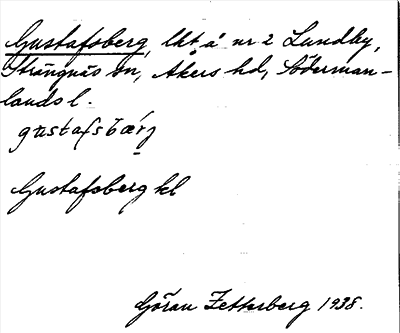 Gustafsberg, lht å nr 2 Lundby,
Strängnäs sn, Åkers hd, Söderman-
lands l.
gustafsbærj
Gustafsberg kl
Göran Zetterberg 1938.